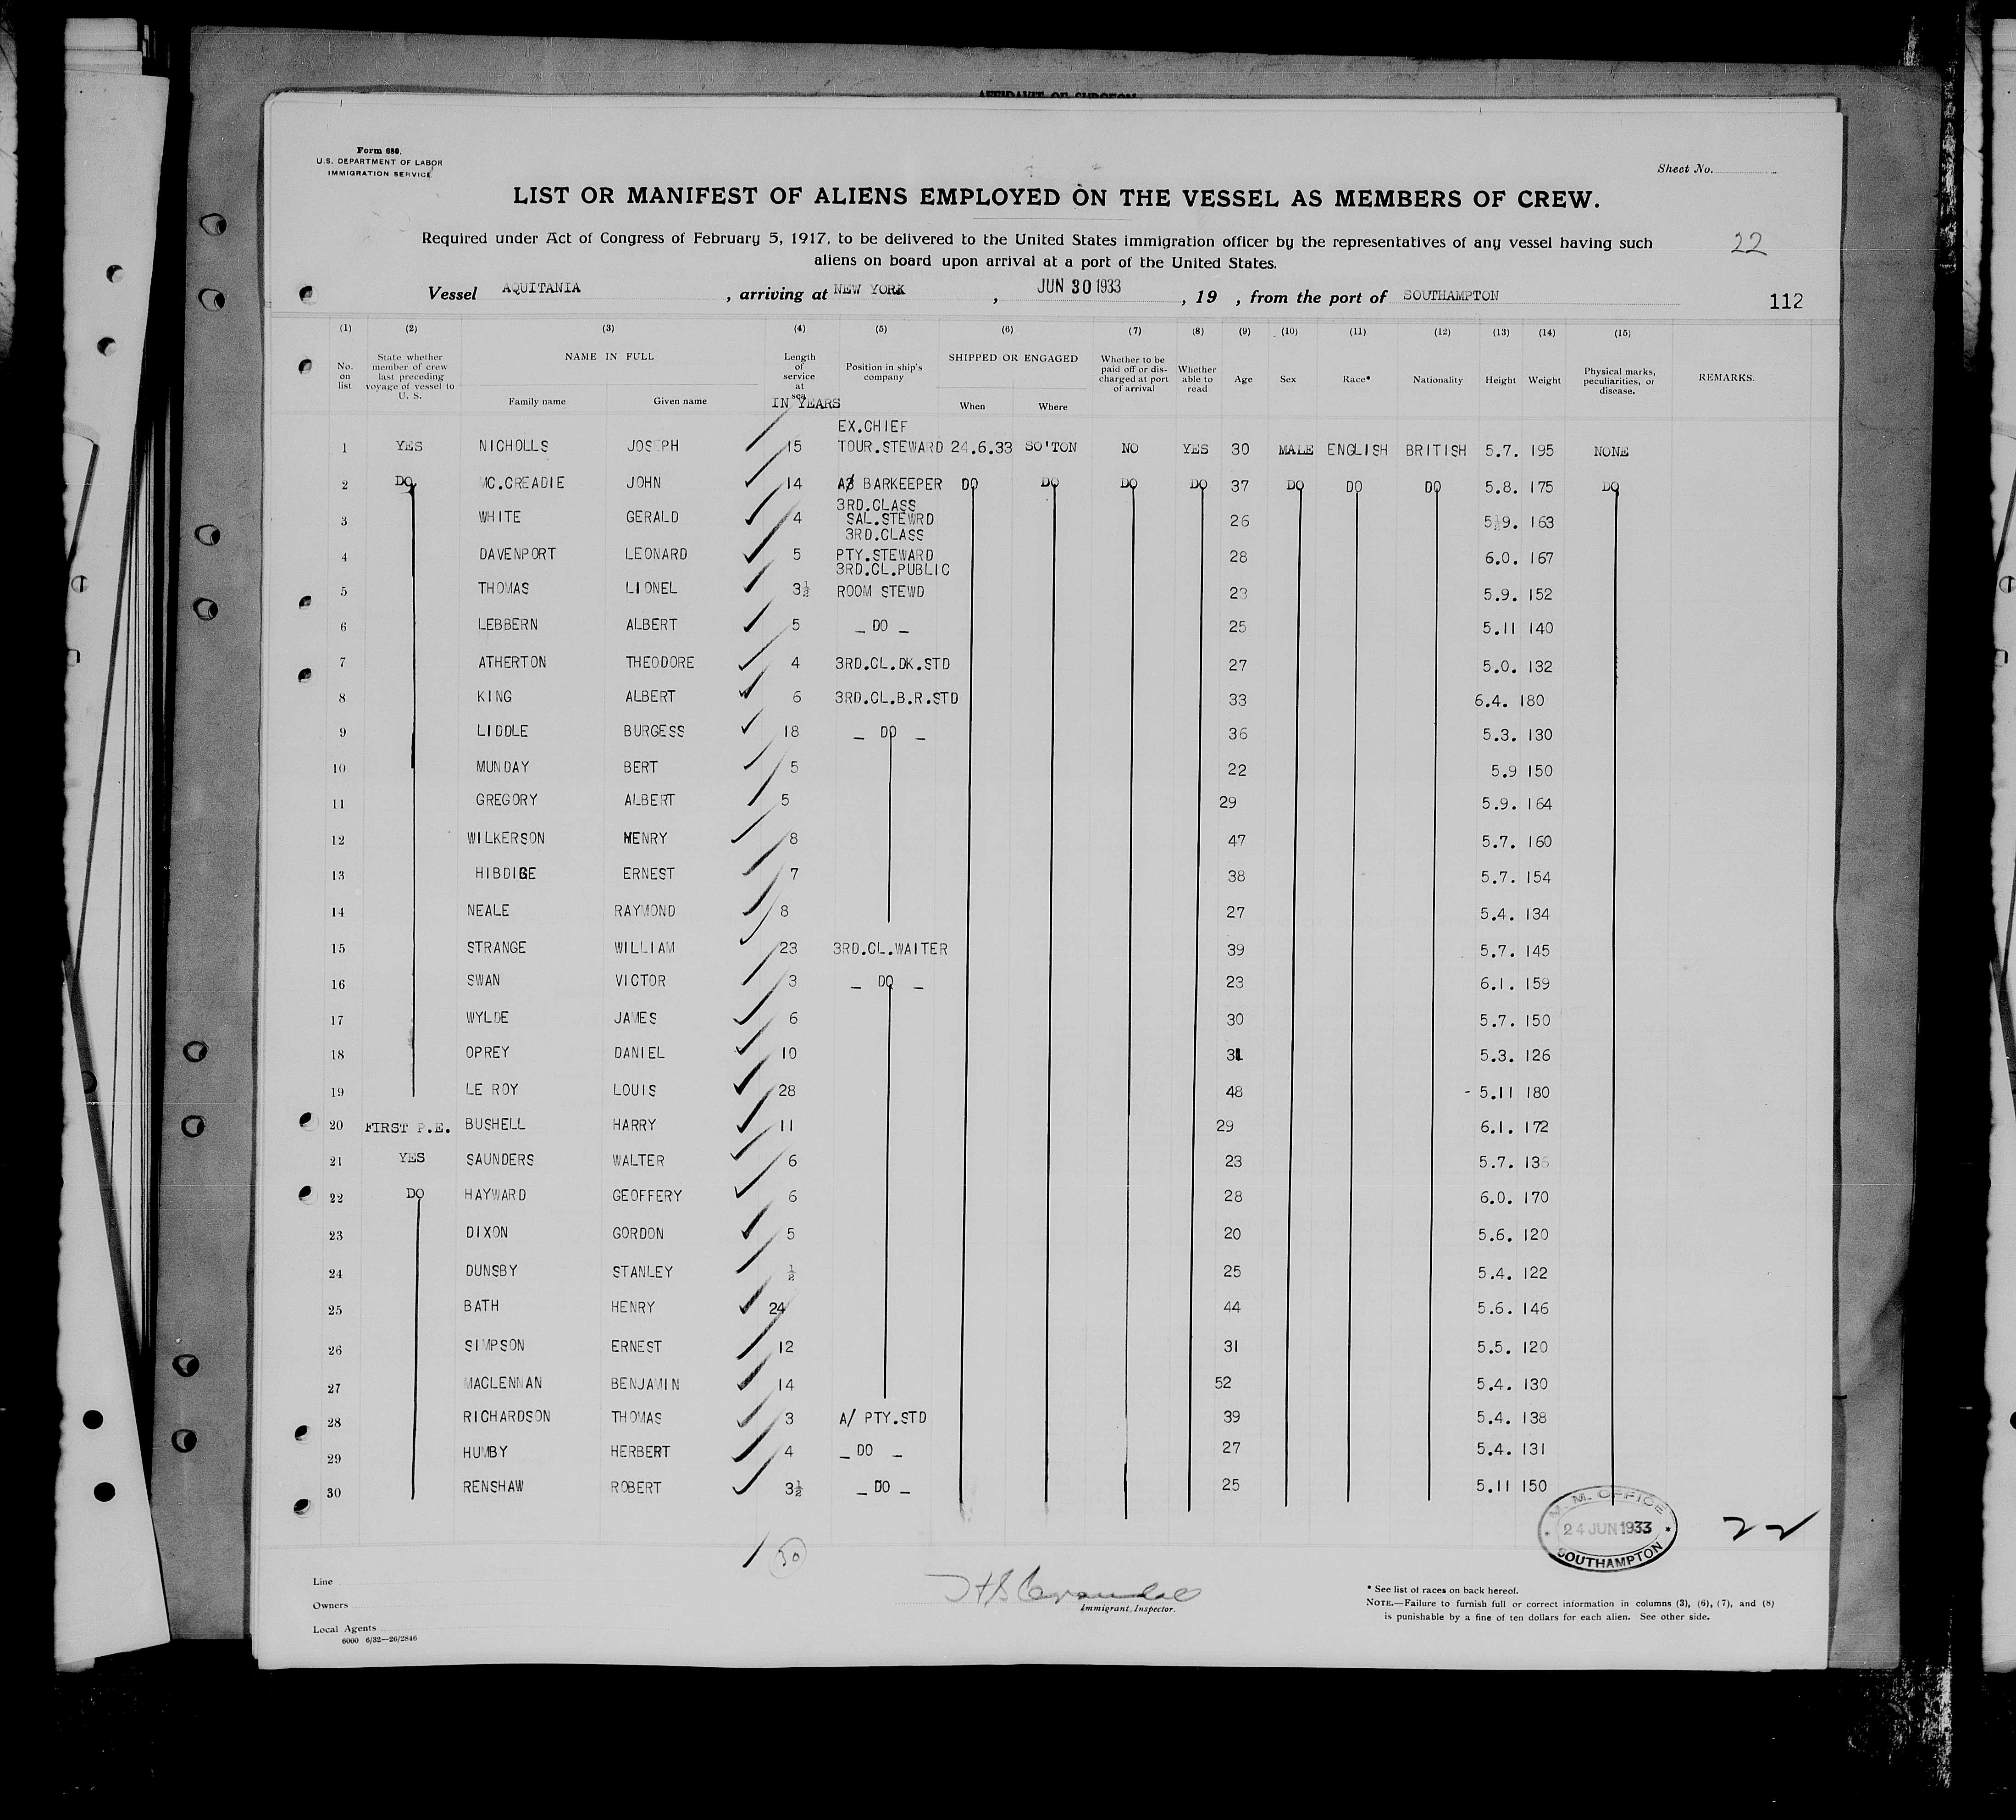 AFFIDAVIT OF SURGEON
Form 680.
U.S. DEPARTMENT OF LABOR
IMMIGRATION SERVICE
Sheet No.
LIST OR MANIFEST OF ALIENS EMPLOYED ON THE VESSEL AS MEMBERS OF CREW.
Required under Act of Congress of February 5, 1917, to be delivered to the United States immigration officer by the representatives of any vessel having such
aliens on board upon arrival at a port of the United States.
22
Vessel AQUITANIA , arriving at NEW YORK , JUN 30 1933 , 19 , from the port of SOUTHAMPTON
112
(1) (2) (3) (4) (5) (6) (7) (8) (9) (10) (11) (12) (13) (14) (15)
No. on list State whether member of crew last preceding voyage of vessel to U. S. NAME IN FULL Family name Given name Length of service at sea IN YEARS Position in ship's company SHIPPED OR ENGAGED When Where Whether to be paid off or discharged at port of arrival Whether able to read Age Sex Race* Nationality Height Weight Physical marks, peculiarities, or disease. REMARKS.
EX.CHIEF
1 YES NICHOLLS JOSEPH 15 TOUR.STEWARD 24.6.33 SO'TON NO YES 30 MALE ENGLISH BRITISH 5.7. 195 NONE
2 DO MC.CREADIE JOHN 14 BARKEEPER DO DO DO DO 37 DO DO DO 5.8. 175 DO
3RD.CLASS
3 WHITE GERALD 4 SAL.STEWRD 26 5½9. 163
3RD.CLASS
4 DAVENPORT LEONARD 5 PTY.STEWARD 28 6.0. 167
3RD.CL.PUBLIC
5 THOMAS LIONEL 3½ ROOM STEWD 23 5.9. 152
6 LEBBERN ALBERT 5 _ DO _ 25 5.11 140
7 ATHERTON THEODORE 4 3RD.CL.DK.STD 27 5.0. 132
8 KING ALBERT 6 3RD.CL.B.R.STD 33 6.4. 180
9 LIDDLE BURGESS 18 _ DO _ 36 5.3. 130
10 MUNDAY BERT 5 22 5.9 150
11 GREGORY ALBERT 5 29 5.9. 164
12 WILKERSON HENRY 8 47 5.7. 160
13 HIBDIGE ERNEST 7 38 5.7. 154
14 NEALE RAYMOND 8 27 5.4. 134
15 STRANGE WILLIAM 23 3RD.CL.WAITER 39 5.7. 145
16 SWAN VICTOR 3 _ DO _ 23 6.1. 159
17 WYLDE JAMES 6 30 5.7. 150
18 OPREY DANIEL 10 31 5.3. 126
19 LE ROY LOUIS 28 48 - 5.11 180
20 FIRST P.E. BUSHELL HARRY 11 29 6.1. 172
21 YES SAUNDERS WALTER 6 23 5.7. 136
22 DO HAYWARD GEOFFERY 6 28 6.0. 170
23 DIXON GORDON 5 20 5.6. 120
24 DUNSBY STANLEY ½ 25 5.4. 122
25 BATH HENRY 24 44 5.6. 146
26 SIMPSON ERNEST 12 31 5.5. 120
27 MACLENNAN BENJAMIN 14 52 5.4. 130
28 RICHARDSON THOMAS 3 A/ PTY.STD 39 5.4. 138
29 HUMBY HERBERT 4 _ DO _ 27 5.4. 131
30 RENSHAW ROBERT 3½ _ DO _ 25 5.11 150
M.M. OFFICE
24 JUN 1933
SOUTHAMPTON
22
30
Line
Owners
Local Agents
6000 6/32—26/2846
Immigrant Inspector.
* See list of races on back hereof.
NOTE.—Failure to furnish full or correct information in columns (3), (6), (7), and (8)
is punishable by a fine of ten dollars for each alien. See other side.